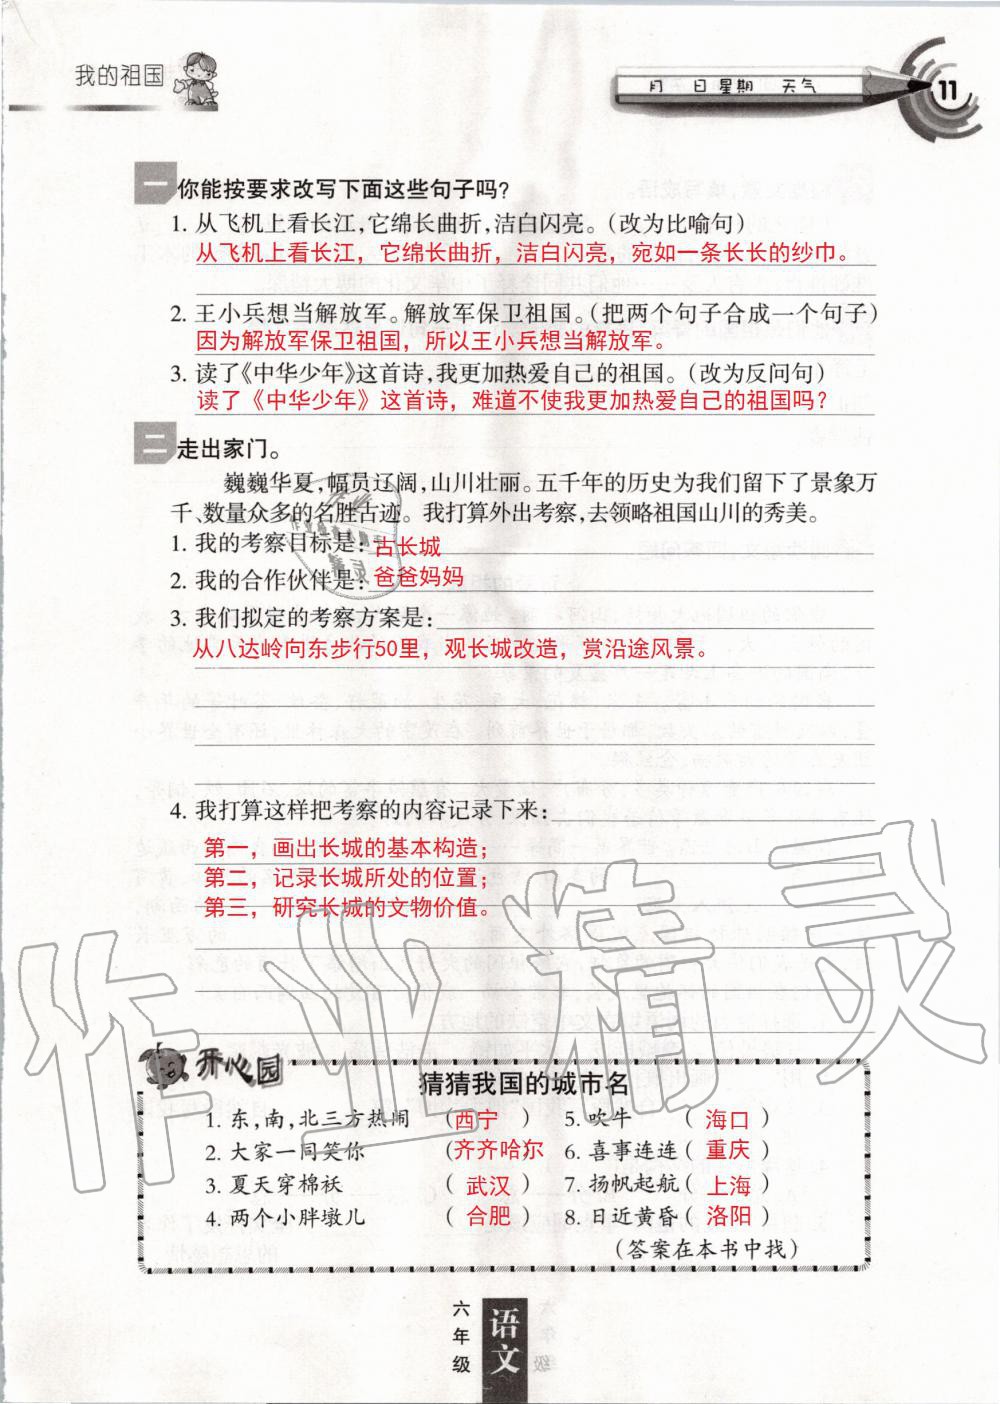 我的祖国
月 日 星期 天气
11
一 你能按要求改写下面这些句子吗?
1. 从飞机上看长江,它绵长曲折,洁白闪亮。(改为比喻句)
从飞机上看长江，它绵长曲折，洁白闪亮，宛如一条长长的纱巾。
2. 王小兵想当解放军。解放军保卫祖国。(把两个句子合成一个句子)
因为解放军保卫祖国，所以王小兵想当解放军。
3. 读了《中华少年》这首诗,我更加热爱自己的祖国。(改为反问句)
读了《中华少年》这首诗，难道不使我更加热爱自己的祖国吗？
二 走出家门。
巍巍华夏,幅员辽阔,山川壮丽。五千年的历史为我们留下了景象万
千、数量众多的名胜古迹。我打算外出考察,去领略祖国山川的秀美。
1. 我的考察目标是: 古长城
2. 我的合作伙伴是: 爸爸妈妈
3. 我们拟定的考察方案是:
从八达岭向东步行50里，观长城改造，赏沿途风景。
4. 我打算这样把考察的内容记录下来:
第一，画出长城的基本构造；
第二，记录长城所处的位置；
第三，研究长城的文物价值。
作业精灵
开心园
猜猜我国的城市名
1. 东,南,北三方热闹 (西宁) 5. 吹牛 (海口)
2. 大家一同笑你 (齐齐哈尔) 6. 喜事连连 (重庆)
3. 夏天穿棉袄 (武汉) 7. 扬帆起航 (上海)
4. 两个小胖墩儿 (合肥) 8. 日近黄昏 (洛阳)
(答案在本书中找)
六年级
语文